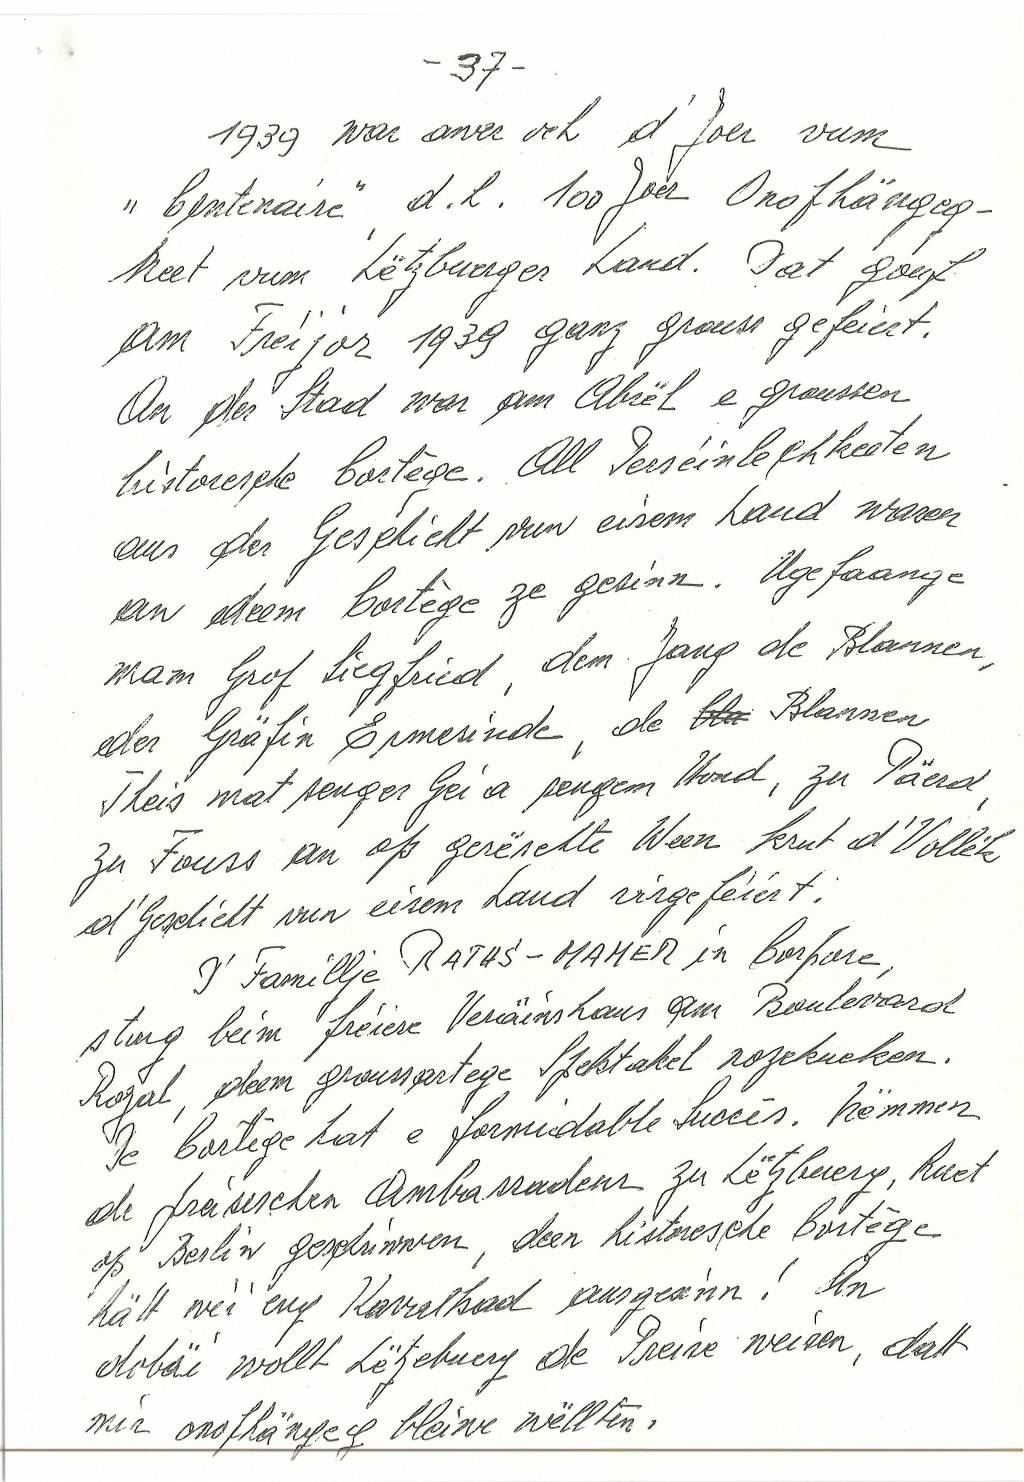 - 37 -
1939 war awer och d'Joer vum
"Centenaire", d.h. 100 Joer Onofhängeg-
keet vum Lëtzbuerger Land. Dat gouf
am Fréijor 1939 ganz grouss gefeiert.
An der Stad war am Abrëll e groussen
historesche Cortège. All Perséinlechkeeten
aus der Geschicht vun eisem Land waren
an deem Cortège ze gesinn. Ugefaange
mam Grof Siegfried, dem Jang de Blannen,
der Gräfin Ermesinde, de Blannen
Theis mat senger Gei a sengem Hond, zu Päerd,
zu Fouss an op geréschte Ween krut d'Vollék
d'Geschicht vun eisem Land virgeféiert.
D'Famillje RATHS-MAMER in Corpore,
stung beim fréiere Veräinshaus am Boulevard
Royal, deem groussartege Spektakel nozekucken.
De Cortège hat e formidable Succès. Nëmmen
de fräisschen Ambassadeur zu Lëtzbuerg, huet
op Berlin geschriwwen, deen historesche Cortège
hätt wéi eng Kavalkad ausgesinn! An
dobäi wollt Lëtzebuerg de Preise weisen, datt
mir onofhängeg bleiwe wëllten.